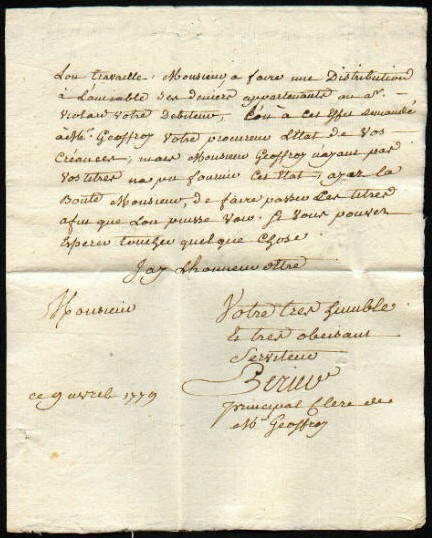 Lon travaille, Monsieur a faire une Distribution
à Lamiable des deniers appartenants au Sr.
votre debiteur, Lon à cet effet demandé
à Me. Geoffroy Votre procureur L'Etat de Vos
Créances, mais Monsieur Geoffroy n'ayant pas
Vos titres na pu fournir cet Etat, ayez la
Bonté Monsieur, de faire passer Les titres
afin que Lon puisse voir si Vous pouvez
Esperer toucher quelque chose
Jay Lhonneur dEtre
Monsieur
Votre tres humble
Et tres obeisant
Serviteur
ce 9 avril 1779
principal Clerc de
Me Geoffroy